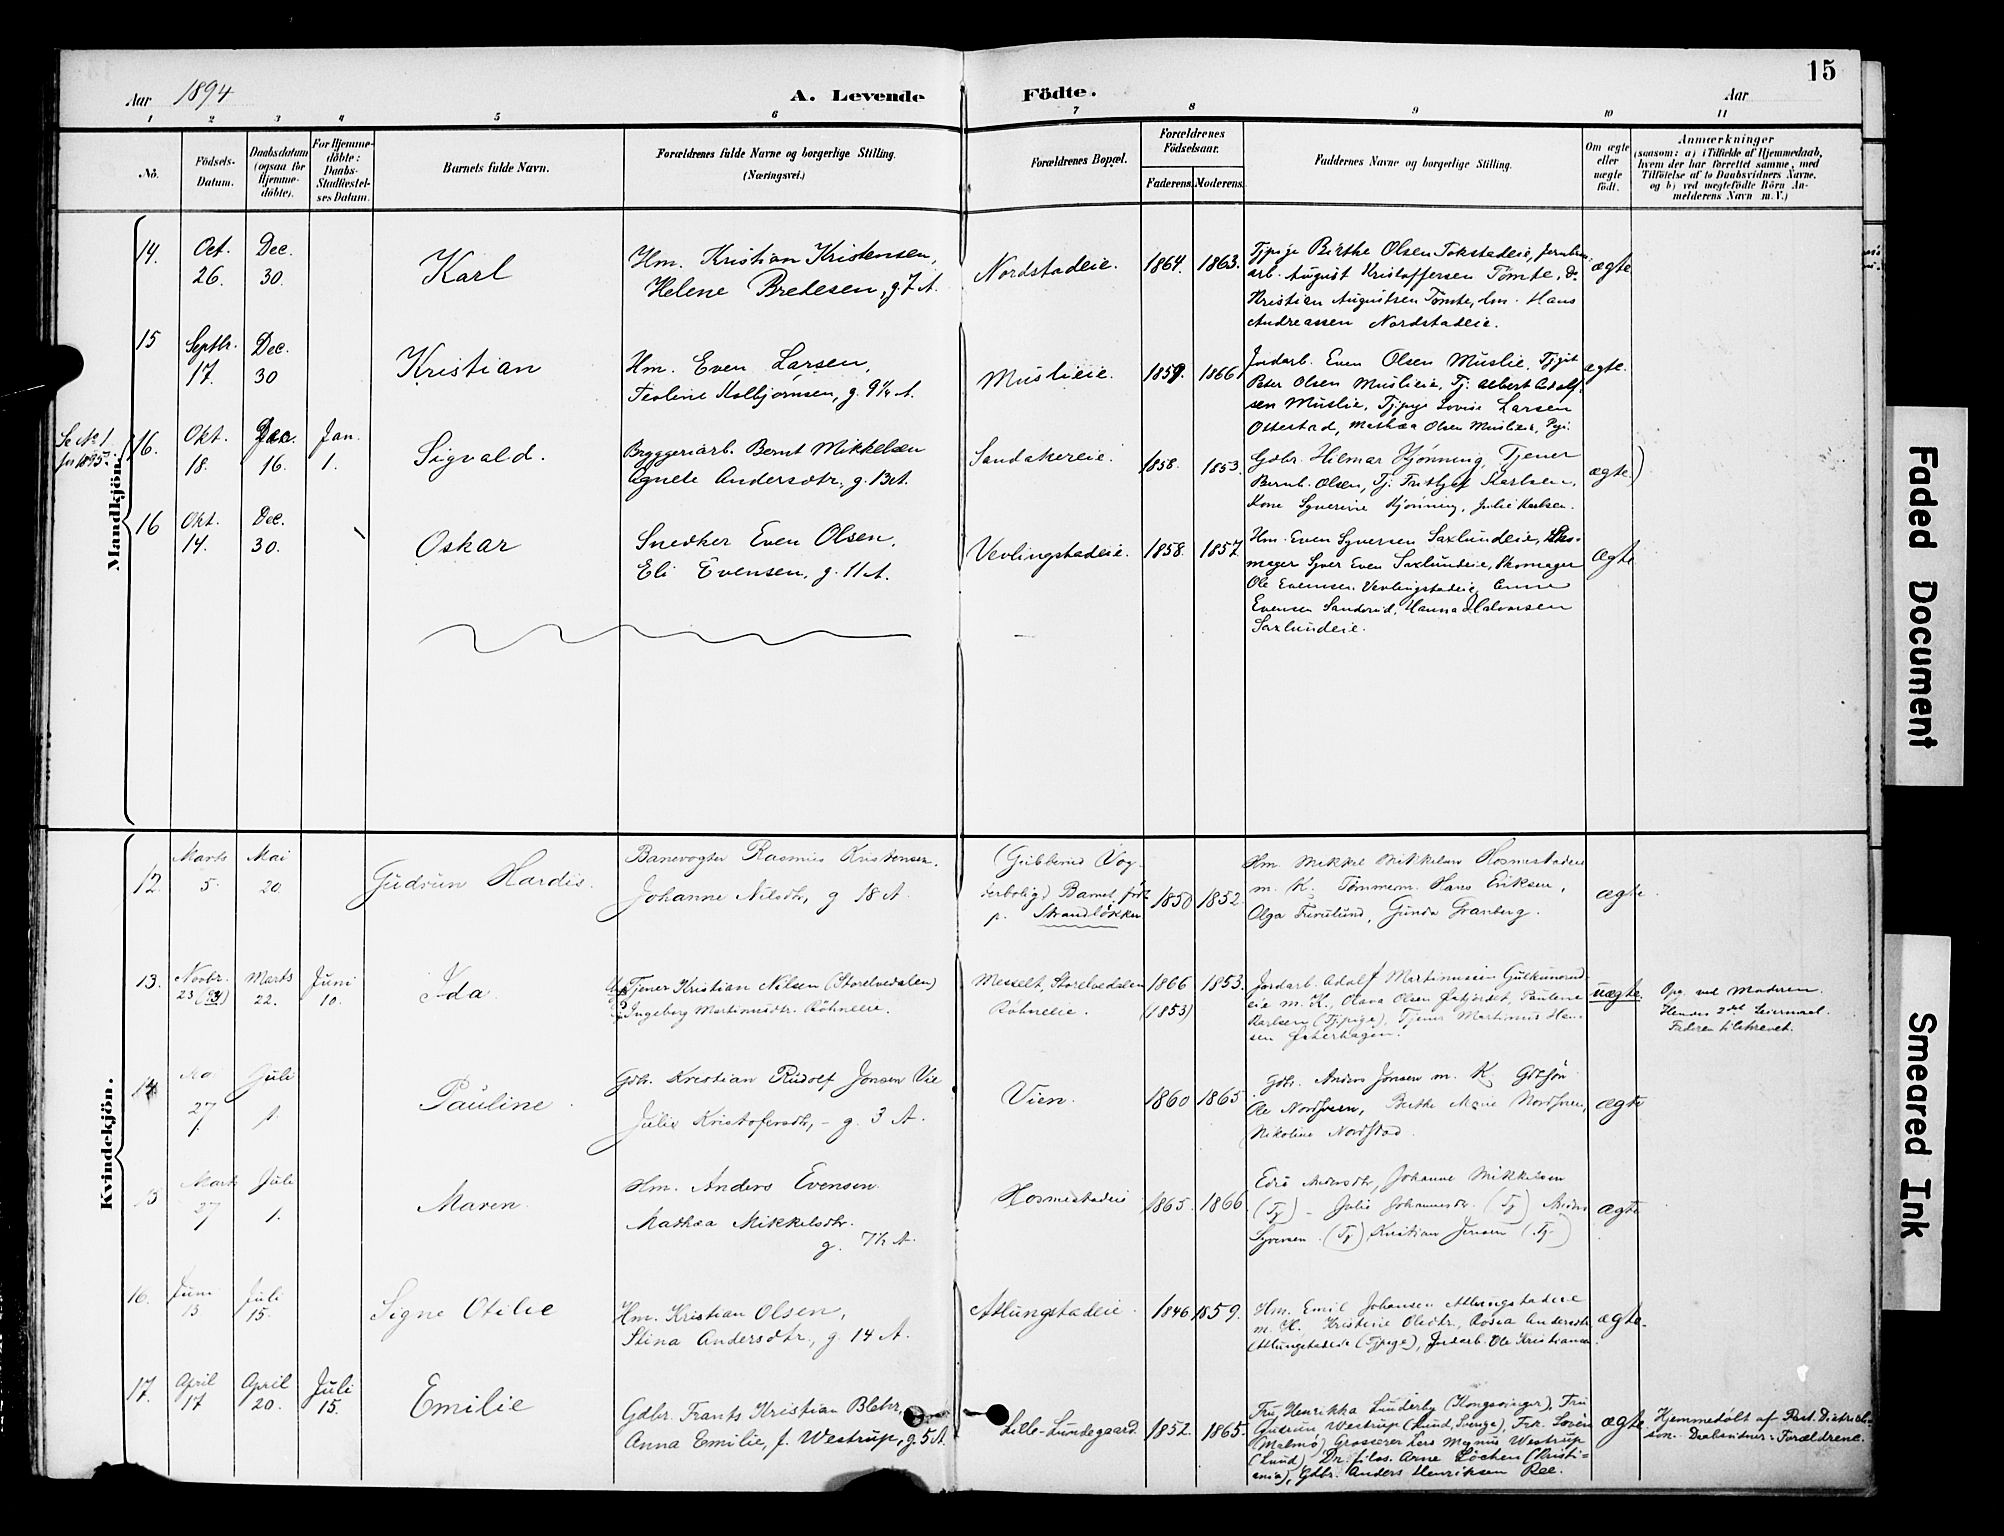 15
Aar 1894
A. Levende Födte.
Aar
1 2 3 4 5 6 7 8 9 10 11
No.
Födsels-
Datum.
Daabsdatum
(ogsaa for
Hjemme-
döbte).
For Hjemme-
döbte:
Daabs-
Stadfæstel-
ses Datum.
Barnets fulde Navn.
Forældrenes fulde Navne og borgerlige Stilling.
(Næringsvei.)
Forældrenes Bopæl.
Forældrenes
Födselsaar.
Faderens. Moderens.
Faddernes Navne og borgerlige Stilling.
Om ægte
eller
uægte
födt.
Anmærkninger
(saasom: a) i Tilfælde af Hjemmedaab,
hvem der har forrettet samme, med
Tilföielse af to Daabsvidners Navne,
og b) ved uægtefödte Börn An-
melderens Navn m. V.)
Mandkjön.
14.
Oct.
26.
Dec.
30.
Karl
Hm. Kristian Kristensen,
Helene Bredesen, g. 7 A.
Nordstadeie.
1864. 1863.
Tjpige Birthe Olsen Tokstadeie, Jernban.
arb. August Kristoffersen Tømte, do
Kristian Augustsen Tømte, hm. Hans
Andreassen Nordstadeie.
ægte
15
Septbr.
17.
Dec.
30
Kristian
Hm. Even Larsen,
Teoline Kolbjørnsen, g. 9 1/4 A.
Muslieie.
1859. 1866
Jordarb. Even Olsen Muslie, Tjgt
Peter Olsen Muslieie, Tj. Albert Adolf-
sen Muslie, Tjpige Lovise Larsen
Ottestad, Mathea Olsen Muslieie, Pige
ægte.
Se No 1
for 1895.
16.
Okt.
18.
Dec.
16.
Jan.
1.
Sigvald.
Bryggeriarb. Bernt Mikkelsen
Agnete Andersdtr, g. 13 A.
Sandakereie.
1858. 1853.
Gdbr. Hilmar Hjønning, Tjener
Bernh. Olsen, Tj. Fritjof Karlsen,
Kone Syverine Hjønning, Julie Karlsen.
ægte)
16
Okt.
14.
Dec.
30.
Oskar
Snedker Even Olsen,
Eli Evensen, g. 11 A.
Vevlingstadeie.
1858. 1857
Hm. Even Syversen Saxlundeie, Sko-
mager Syver Even Saxlundeie, Skomager
Ole Evensen Vevlingstadeie, Anne
Evensen Sanderud, Hanna Halvorsen
Saxlundeie.
ægte
Kvindekjön.
12.
Marts
5.
Mai
20
Gudrun Hardis.
Banevogter Rasmus Kristensen.
Johanne Nilsdtr, g 18 A.
(Gubberud Vog-
terbolig) Barnet født
p. Strandløkken
1850 1852.
Hm. Mikkel Mikkelsen Hosmestadeie
m. K. Tømmerm. Hans Eriksen,
Olga Furulund, Gunda Granberg.
ægte
13.
Novbr.
23 (93)
Marts
22.
Juni
10.
Ida
Tjener Kristian Nilsen (Storelvedalen)
Ingeborg Martinusdtr. Røhneeie.
Messelt, Storelvedalen
Røhneeie.
1866
(1853)
1853.
Jordarb. Adolf Martinussen Gulkunerud-
eie m. K., Olava Olsen Østfjordet, Pauline
Karlsen (Tjpige), Tjener Martinus Han-
sen Østerhagen.
uægte.
Opg. ved Moderen.
Hendes 2det Leiermaal.
Faderen tilskrevet.
14
Mai
27
Juli
1.
Pauline
Gdbr. Kristian Rudolf Jonsen Vie
Julie Kristofersdtr, - g. 3 A.
Vien.
1860 1865.
Gdbr. Anders Jonsen m. K. Gdesøn
Ole Nordhven, Berthe Marie Nordhven,
Nikoline Nordstad.
ægte
15
Marts
27
Juli
1.
Maren
Hm. Anders Evensen
Mathea Mikkelsdtr.
g. 7 1/2 A.
Hosmestadeie
1865. 1866
Edis Andersdtr, Johanne Mikkelsen
(Tj) - Julie Johannesdtr. (Tj) Anders
Syversen. (Tj) Kristian Jensen (Tj)
ægte
16.
Juni
13
Juli
15.
Signe Otilie
Hm. Kristian Olsen,
Stina Andersdtr, g 14 A.
Atlungstadeie.
1846 1859.
Hm. Emil Johansen Atlungstadeie
m. K. Kristine Olsdtr, Rosea Andersdtr
Atlungstadeie (Tjpige), Jordarb. Ole Kristiansen
ægte
17.
April
17
April
20.
Juli
15.
Emilie
Gdbr. Frants Kristian Blehr,
Anna Emilie, f. Westrup, g. 5 A.
Lille-Lundegaard
1852. 1865.
Fru Henrikka Lunderby (Kongsvinger), Fru
Gudrun Westrup (Lund, Sverige), Frk. Lovén
(Malmø) Grosserer Lars Magnus Westrup
(Lund) Dr. filos. Arne Løchen (Kristi-
ania), Gdbr. Anders Henriksen Ree.
ægte
Hjemmedøbt af Past. Dietrichs-
son. Daabsvidner: Forældrene.
Faded Document
Smeared Ink